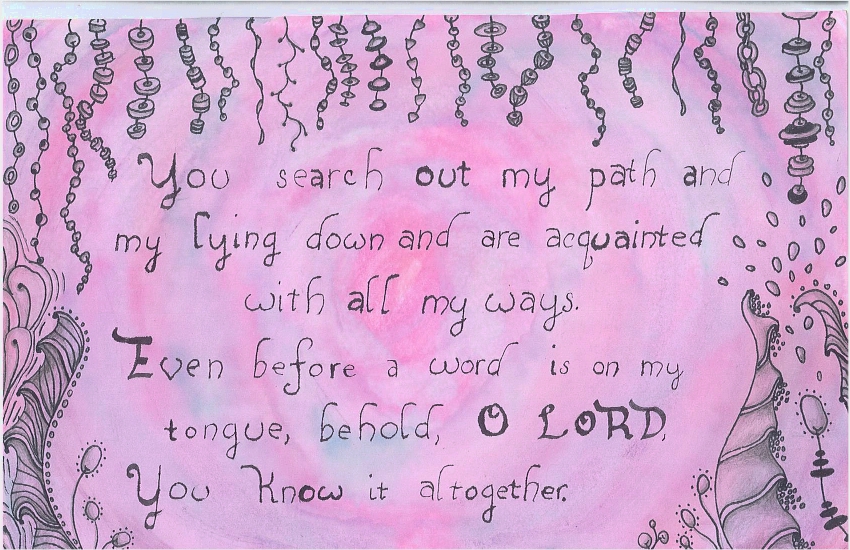 You search out my path and
my lying down and are acquainted
with all my ways.
Even before a word is on my
tongue, behold, O LORD,
You know it altogether.